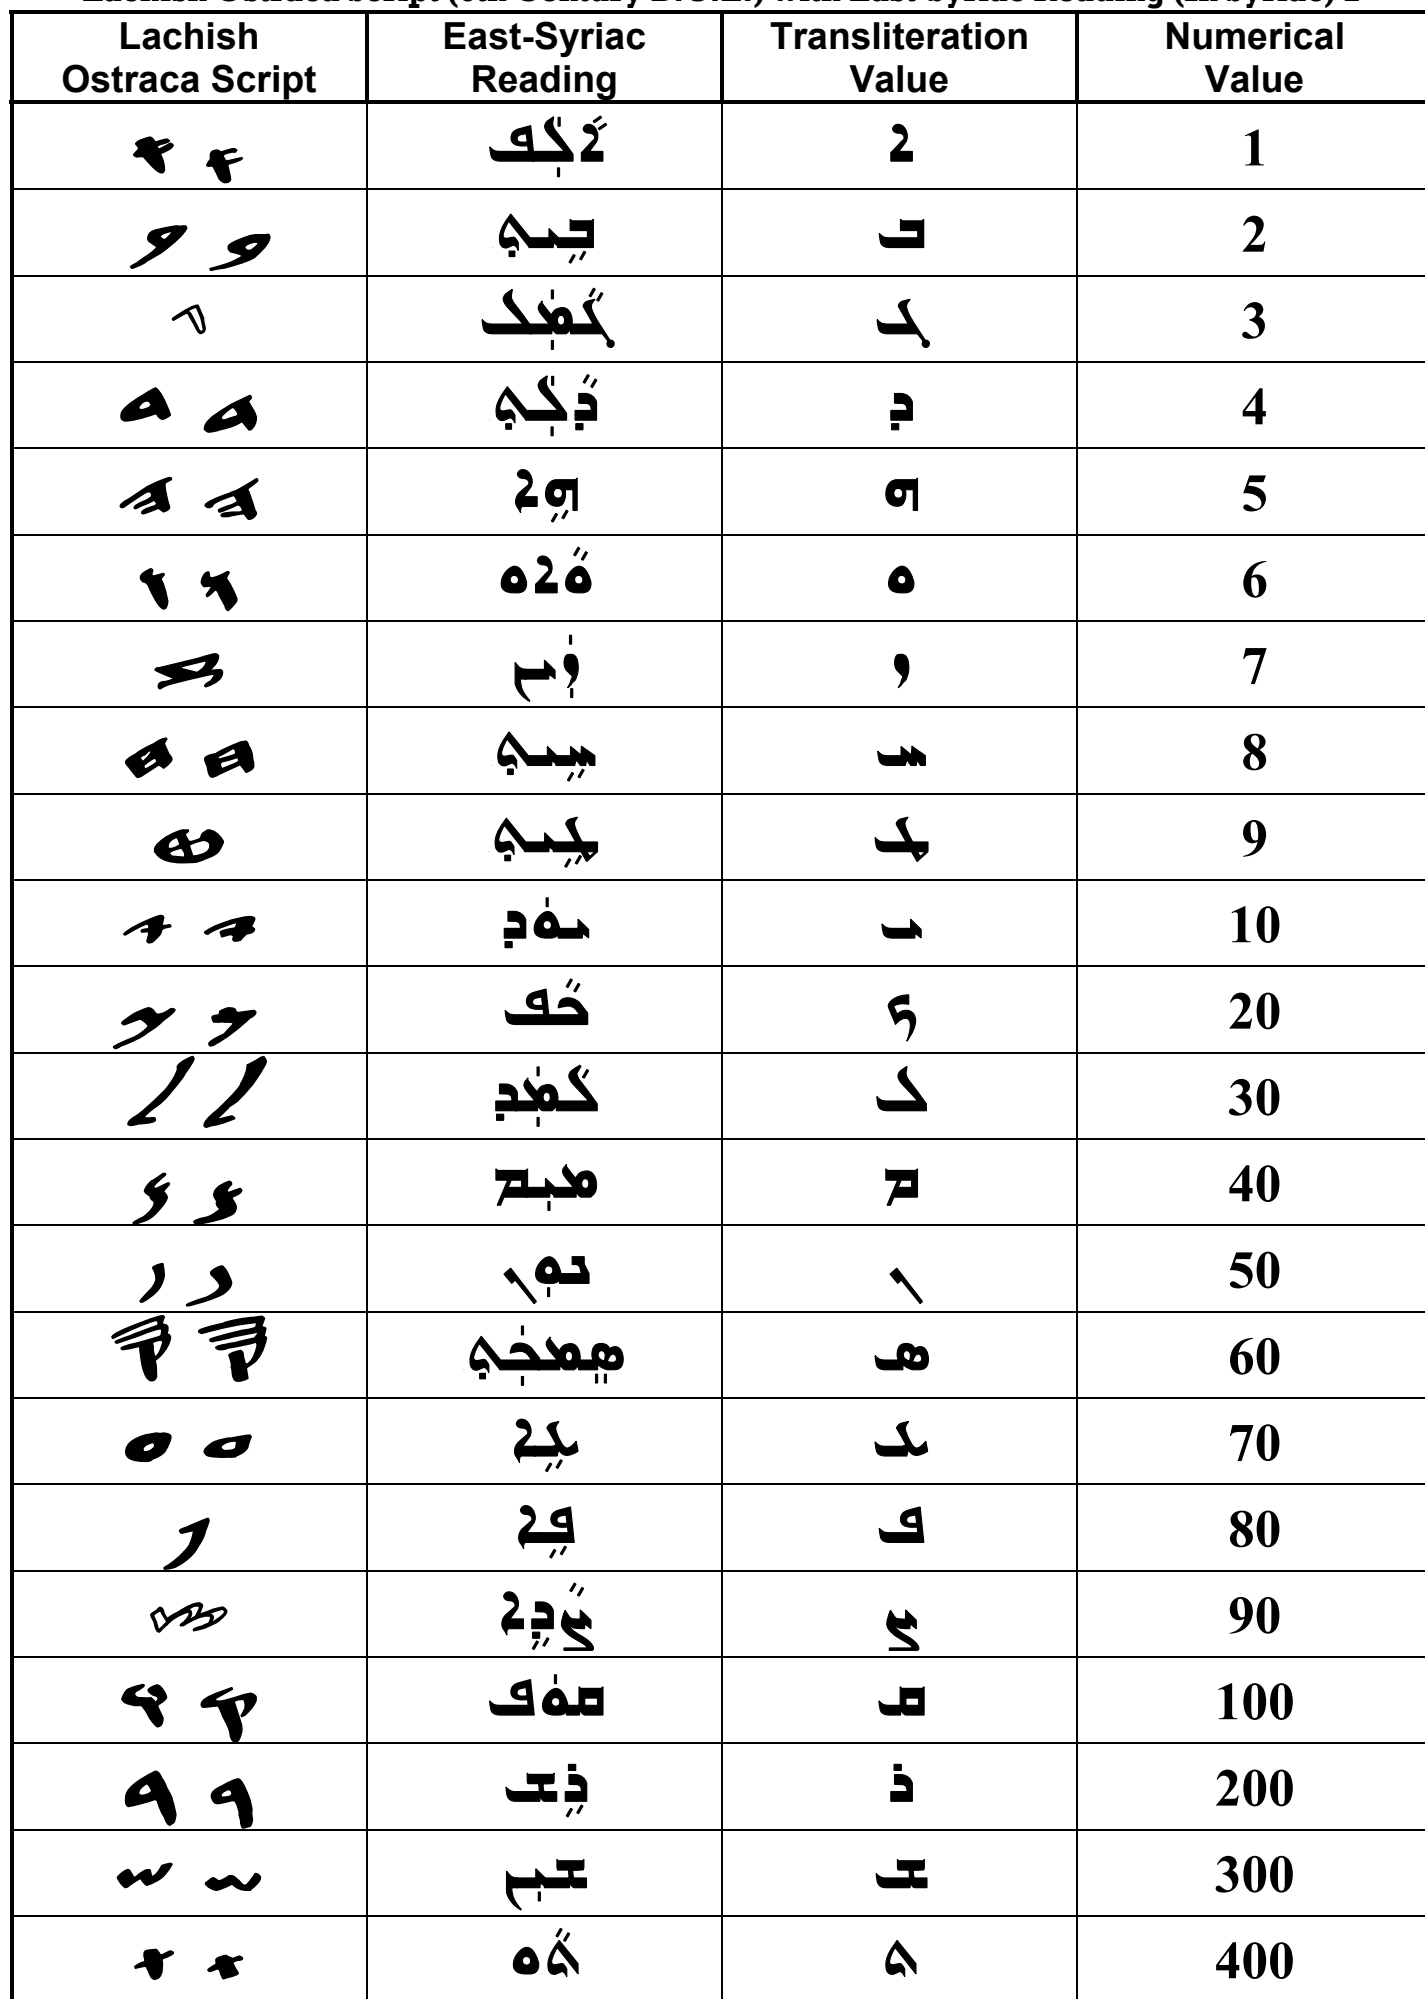 Lachish Ostraca Script East-Syriac Reading Transliteration Value Numerical Value
𐤀 𐤀 ܐܵܠܲܦ ܐ 1
𐤁 𐤁 ܒܹܝܬ݂ ܒ 2
𐤂 ܓܵܡܲܠ ܓ 3
𐤃 𐤃 ܕܵܠܲܬ݂ ܕ 4
𐤄 𐤄 ܗܹܐ ܗ 5
𐤅 𐤅 ܘܵܐܘ ܘ 6
𐤆 ܙܲܝܢ ܙ 7
𐤇 𐤇 ܚܹܝܬ݂ ܚ 8
𐤈 ܛܹܝܬ݂ ܛ 9
𐤉 𐤉 ܝܘܿܕ ܝ 10
𐤊 𐤊 ܟܵܦ ܟ 20
𐤋 𐤋 ܠܵܡܲܕ ܠ 30
𐤌 𐤌 ܡܝܼܡ ܡ 40
𐤍 𐤍 ܢܘܼܢ ܢ 50
𐤎 𐤎 ܣܸܡܟܲܬ݂ ܣ 60
𐤏 𐤏 ܥܹܐ ܥ 70
𐤐 ܦܹܐ ܦ 80
𐤑 ܨܵܕܹܐ ܨ 90
𐤒 𐤒 ܩܘܿܦ ܩ 100
𐤓 𐤓 ܪܹܫ ܪ 200
𐤔 𐤔 ܫܝܼܢ ܫ 300
𐤕 𐤕 ܬܵܘ ܬ 400